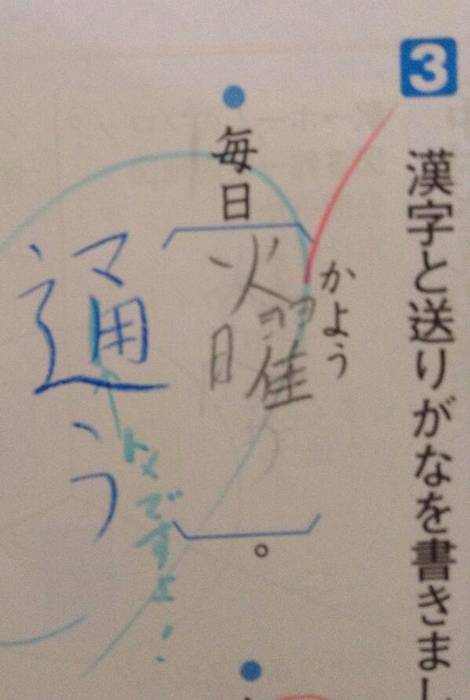 3 漢字と送りがなを書きまし
毎日
かよう
火曜
。
通う
トメですよ!